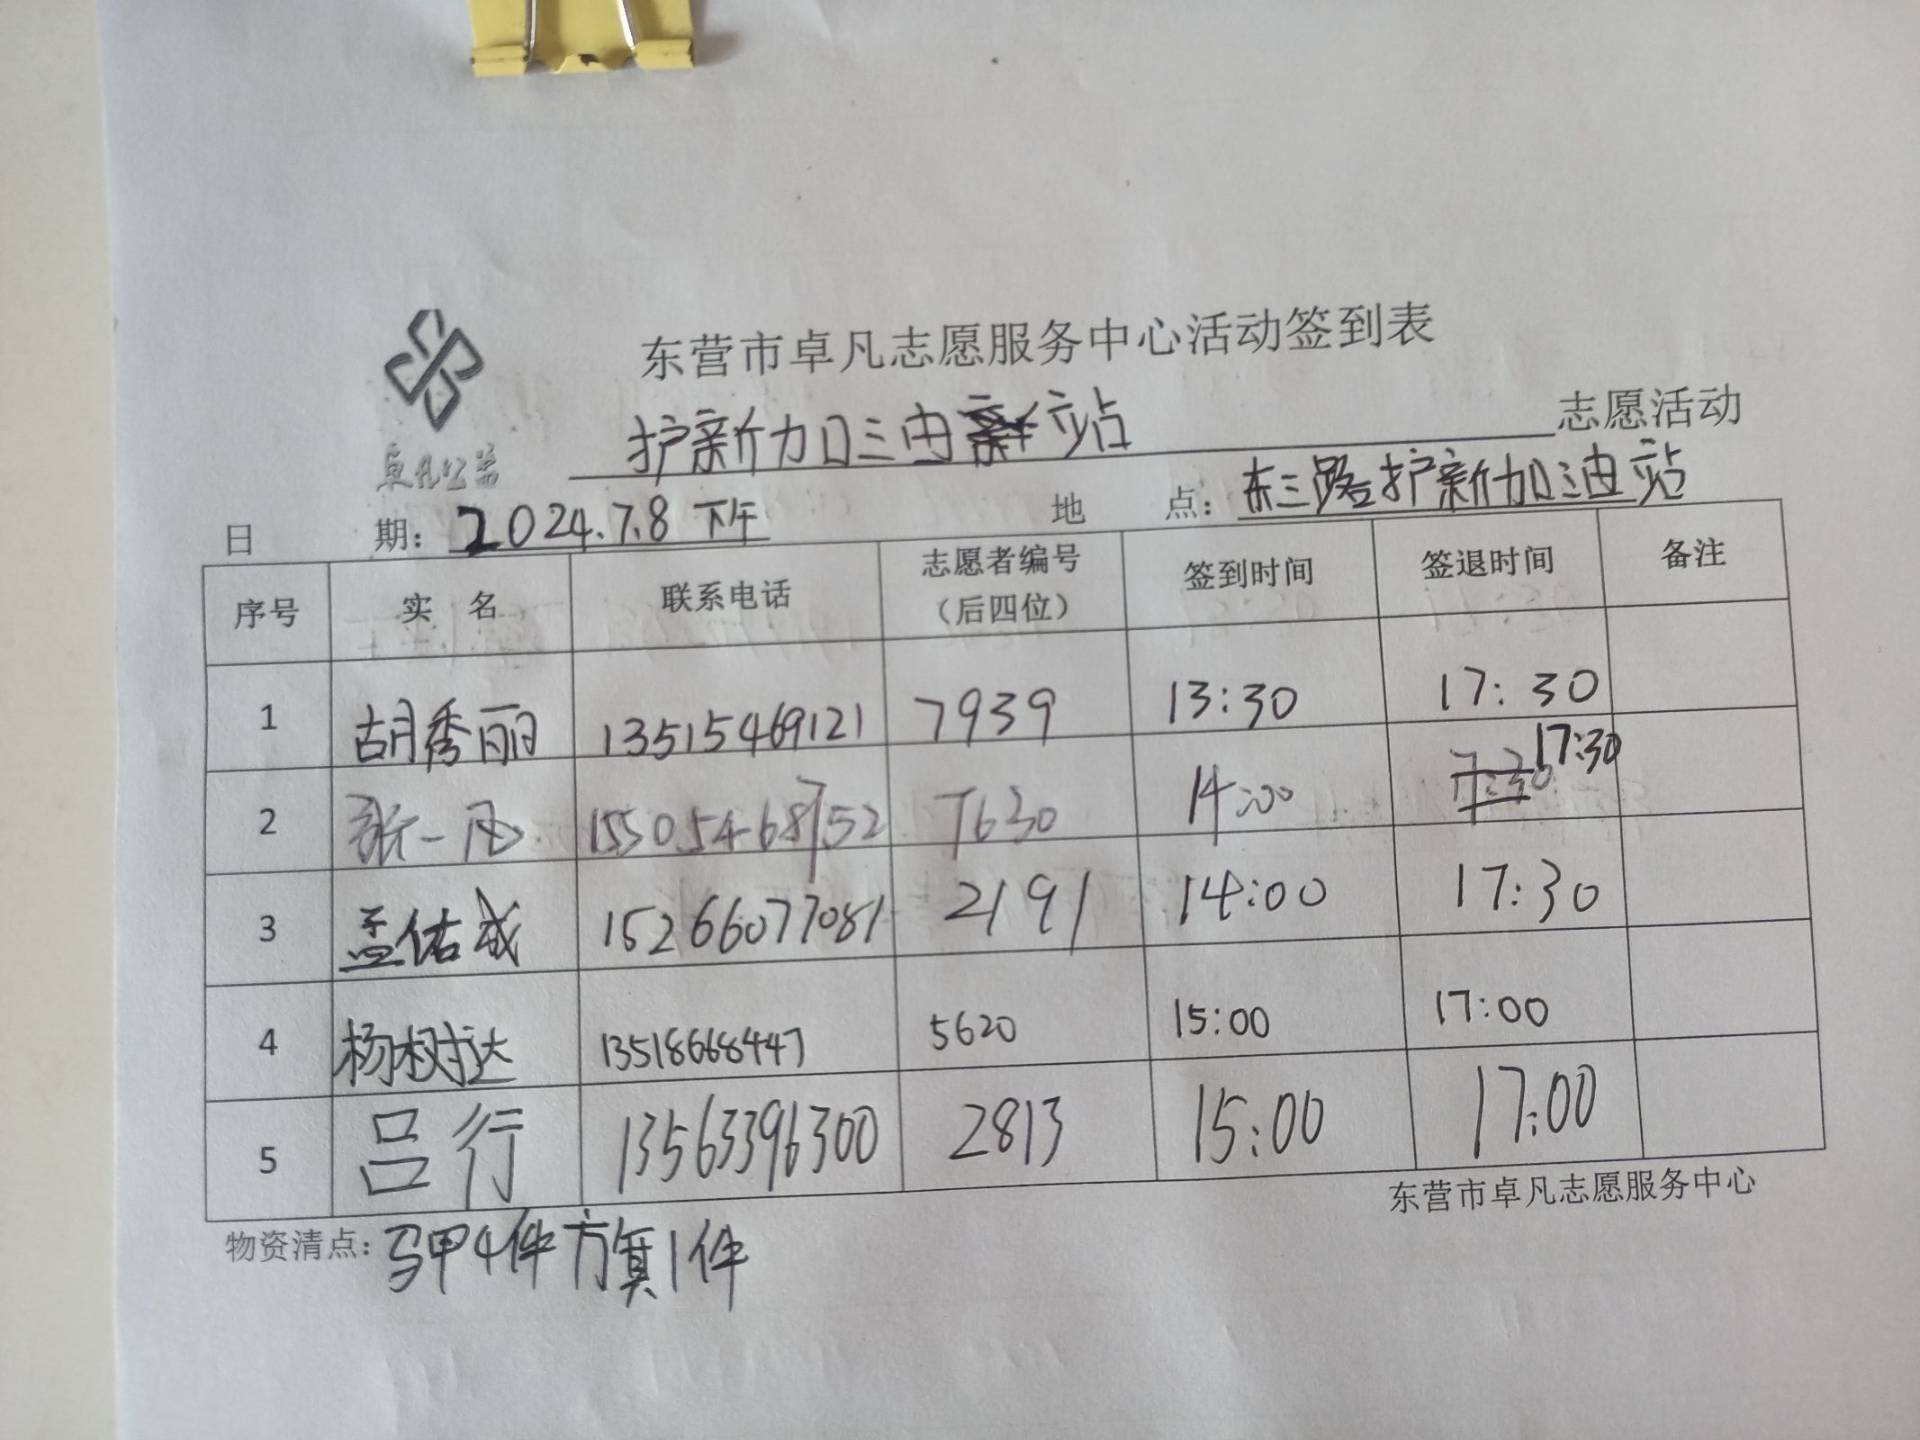 东营市卓凡志愿服务中心活动签到表
卓凡公益
护新加油站 志愿活动
日 期: 2024.7.8 下午 地 点: 东三路护新加油站
序号 实 名 联系电话 志愿者编号（后四位） 签到时间 签退时间 备注
1 胡秀丽 13515469121 7939 13:30 17:30
2 张一凡 15505468752 7630 14:00 17:30
3 孟佑成 15266077081 2191 14:00 17:30
4 杨树达 13518668447 5620 15:00 17:00
5 吕行 13563396300 2813 15:00 17:00
东营市卓凡志愿服务中心
物资清点: 马甲4件方旗1件